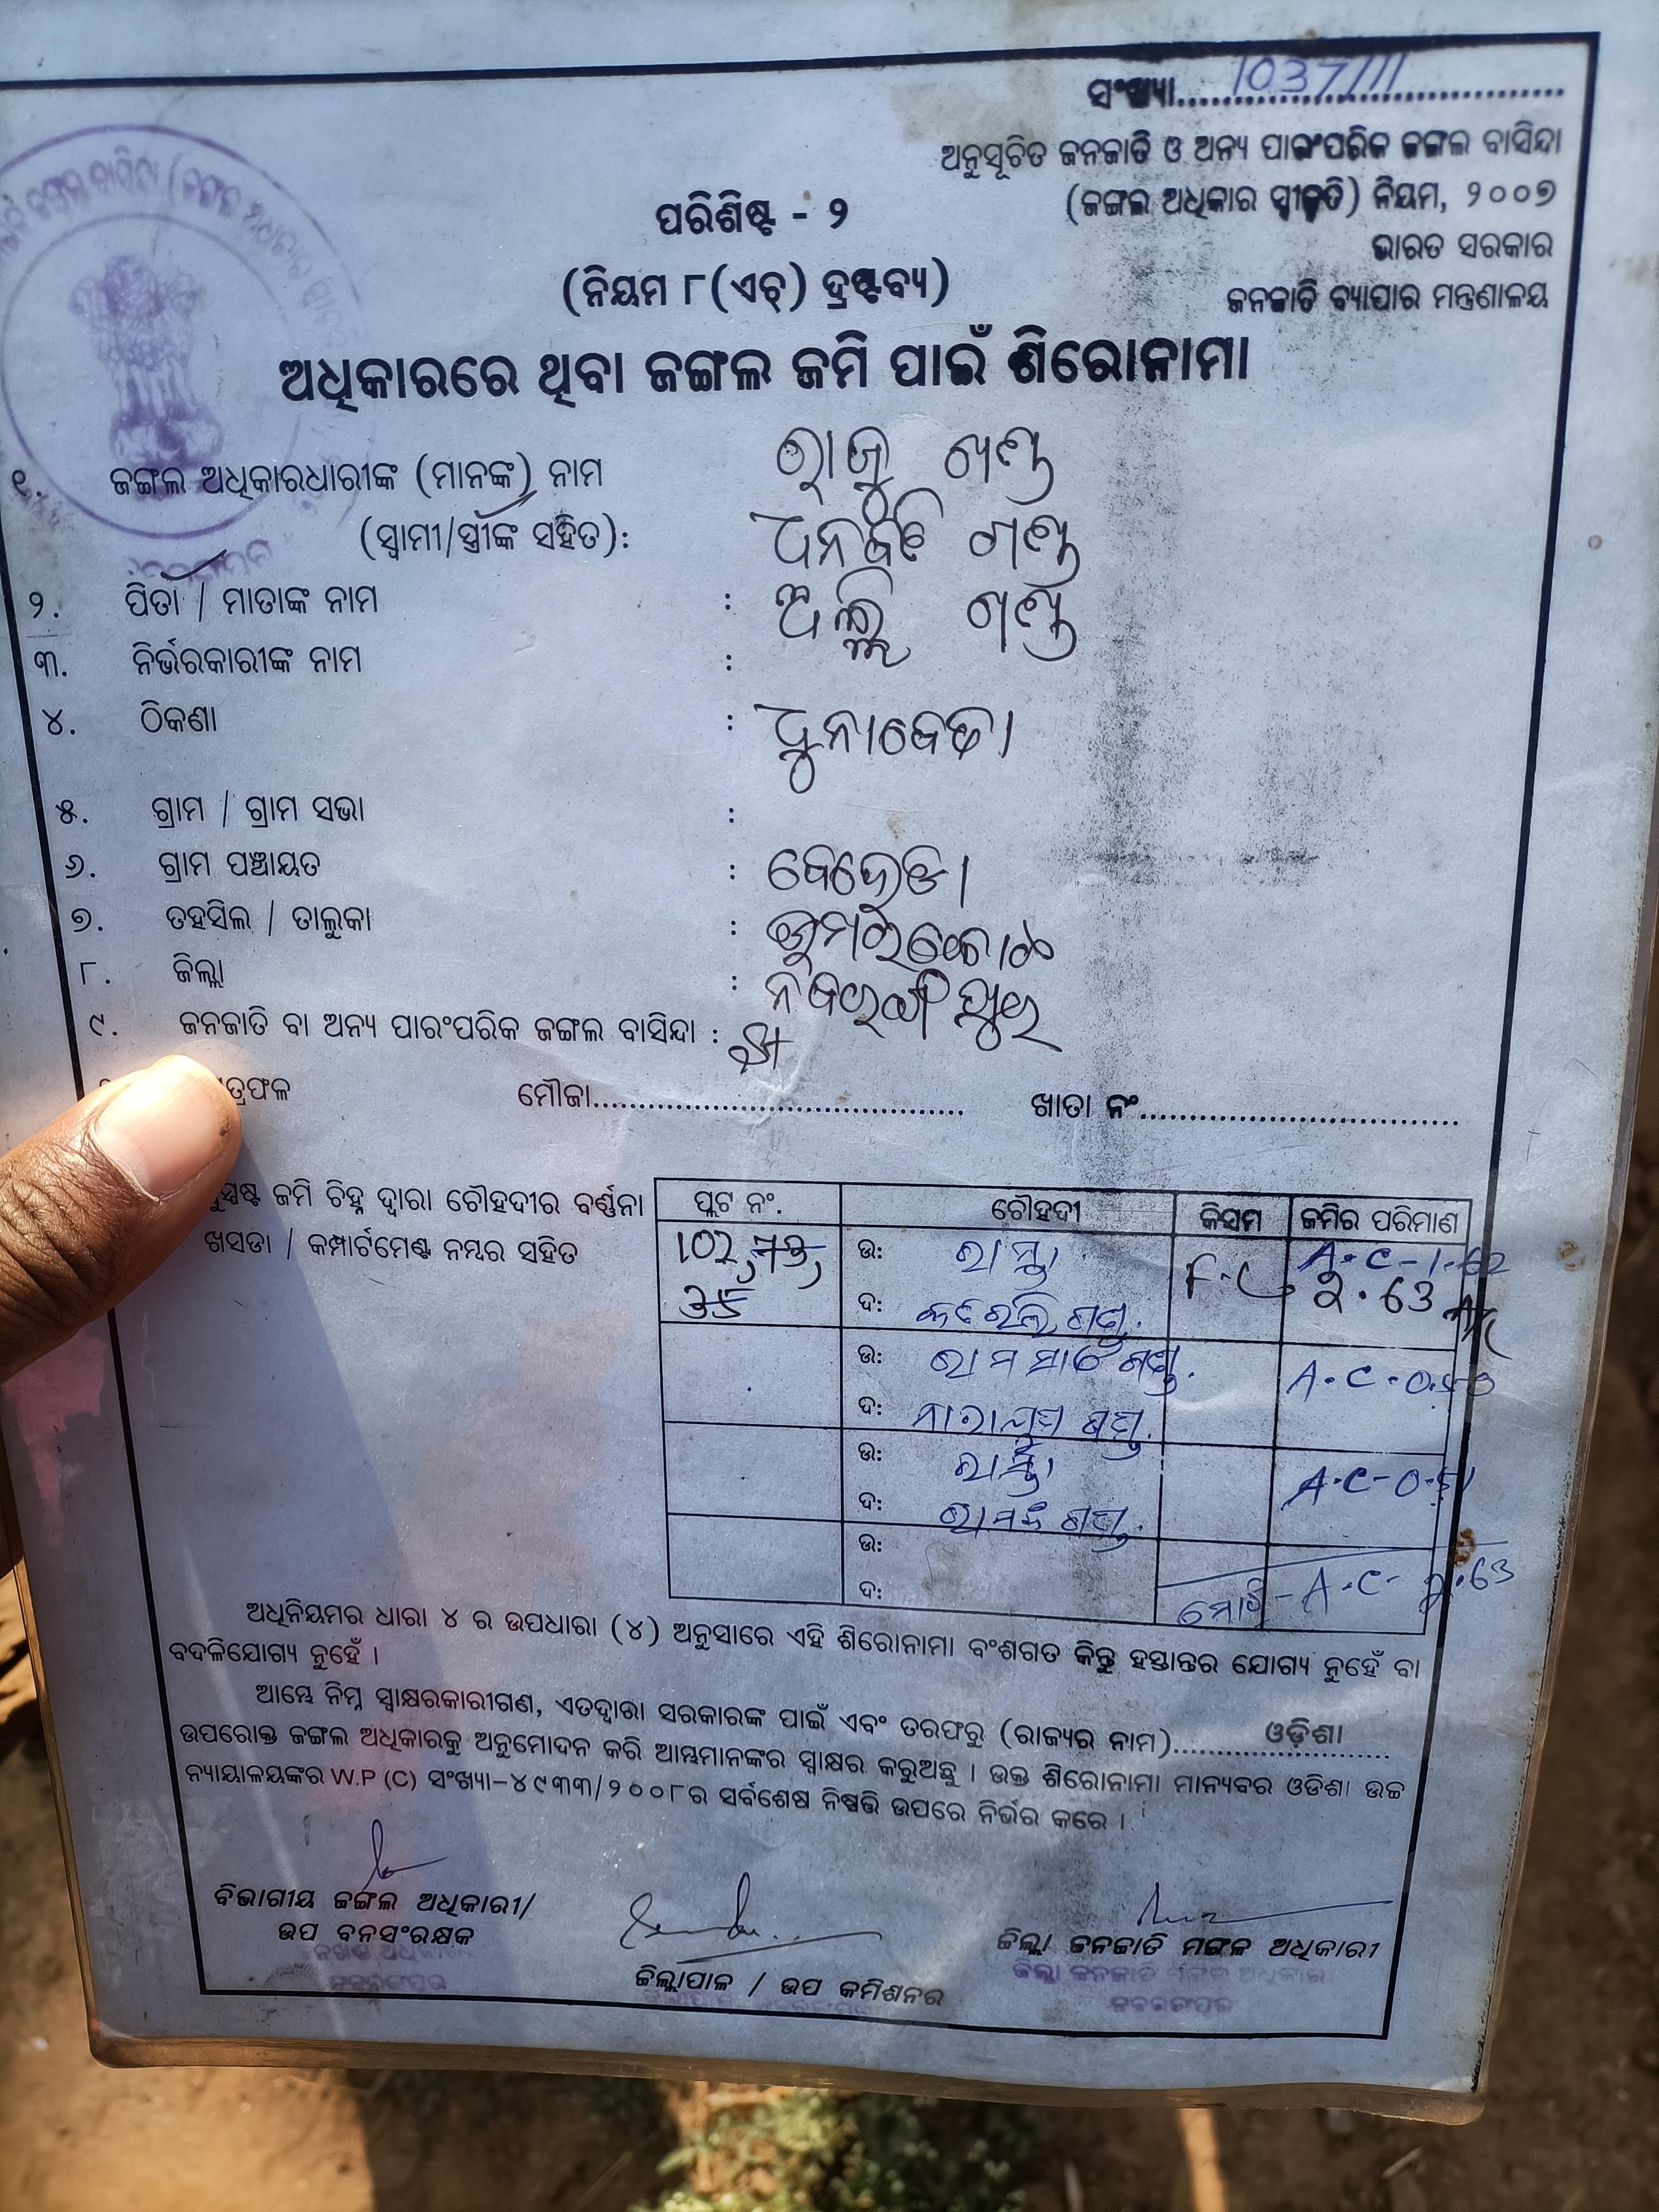 ସଂଖ୍ୟା 1037/11
ଅନୁସୂଚିତ ଜନଜାତି ଓ ଅନ୍ୟ ପାରଂପରିକ ଜଙ୍ଗଲ ବାସିନ୍ଦା
(ଜଙ୍ଗଲ ଅଧିକାର ସ୍ୱୀକୃତି) ନିୟମ, ୨୦୦୭
ଭାରତ ସରକାର
ଜନଜାତି ବ୍ୟାପାର ମନ୍ତ୍ରଣାଳୟ
ପରିଶିଷ୍ଟ - ୨
(ନିୟମ ୮(ଏଚ୍) ଦ୍ରଷ୍ଟବ୍ୟ)
ଅଧିକାରରେ ଥିବା ଜଙ୍ଗଲ ଜମି ପାଇଁ ଶିରୋନାମା
୧. ଜଙ୍ଗଲ ଅଧିକାରଧାରୀଙ୍କ (ମାନଙ୍କ) ନାମ ରାଜୁ ଗଣ୍ଡ
(ସ୍ୱାମୀ/ସ୍ତ୍ରୀଙ୍କ ସହିତ): ଧନମତି ଗଣ୍ଡ
୨. ପିତା / ମାତାଙ୍କ ନାମ : ଗଣ୍ଡ
୩. ନିର୍ଭରକାରୀଙ୍କ ନାମ :
୪. ଠିକଣା : ଧୁନାବେଡା
୫. ଗ୍ରାମ / ଗ୍ରାମ ସଭା :
୬. ଗ୍ରାମ ପଞ୍ଚାୟତ :
୭. ତହସିଲ / ତାଲୁକା : ଉମରକୋଟ
୮. ଜିଲ୍ଲା : ନବରଙ୍ଗପୁର
୯. ଜନଜାତି ବା ଅନ୍ୟ ପାରଂପରିକ ଜଙ୍ଗଲ ବାସିନ୍ଦା : ST
ମୌଜା ଖାତା ନଂ
ଜମି ଚିହ୍ନ ଦ୍ୱାରା ଚୌହଦୀର ବର୍ଣ୍ଣନା
ଖସଡା / କମ୍ପାର୍ଟମେଣ୍ଟ ନମ୍ବର ସହିତ
ପ୍ଲଟ ନଂ. ଚୌହଦୀ କିସମ ଜମିର ପରିମାଣ
ଉ: ରାସ୍ତା A.C-1.62
ଦ: ଗଣ୍ଡ ୨.63
ଉ: ଗଣ୍ଡ A.C-0.50
ଦ: ଗଣ୍ଡ
ଉ: ରାସ୍ତା A.C-0.51
ଦ: ଗଣ୍ଡ
ଉ:
ଦ: ମୋଟ - A.C- ୨.63
ଅଧିନିୟମର ଧାରା ୪ ର ଉପଧାରା (୪) ଅନୁସାରେ ଏହି ଶିରୋନାମା ବଂଶଗତ କିନ୍ତୁ ହସ୍ତାନ୍ତର ଯୋଗ୍ୟ ନୁହେଁ ବା
ବଦଳିଯୋଗ୍ୟ ନୁହେଁ ।
ଆମ୍ଭେ ନିମ୍ନ ସ୍ୱାକ୍ଷରକାରୀଗଣ, ଏତଦ୍ଦ୍ୱାରା ସରକାରଙ୍କ ପାଇଁ ଏବଂ ତରଫରୁ (ରାଜ୍ୟର ନାମ) ଓଡ଼ିଶା
ଉପରୋକ୍ତ ଜଙ୍ଗଲ ଅଧିକାରକୁ ଅନୁମୋଦନ କରି ଆମ୍ଭମାନଙ୍କର ସ୍ୱାକ୍ଷର କରୁଅଛୁ । ଉକ୍ତ ଶିରୋନାମା ମାନ୍ୟବର ଓଡିଶା ଉଚ୍ଚ
ନ୍ୟାୟାଳୟଙ୍କର W.P (C) ସଂଖ୍ୟା-୪୯୩୩/୨୦୦୮ ର ସର୍ବଶେଷ ନିଷ୍ପତ୍ତି ଉପରେ ନିର୍ଭର କରେ ।
ବିଭାଗୀୟ ଜଙ୍ଗଲ ଅଧିକାରୀ/
ଉପ ବନସଂରକ୍ଷକ
ଜିଲ୍ଲାପାଳ / ଉପ କମିଶନର
ଜିଲ୍ଲା ଜନଜାତି ମଙ୍ଗଳ ଅଧିକାରୀ